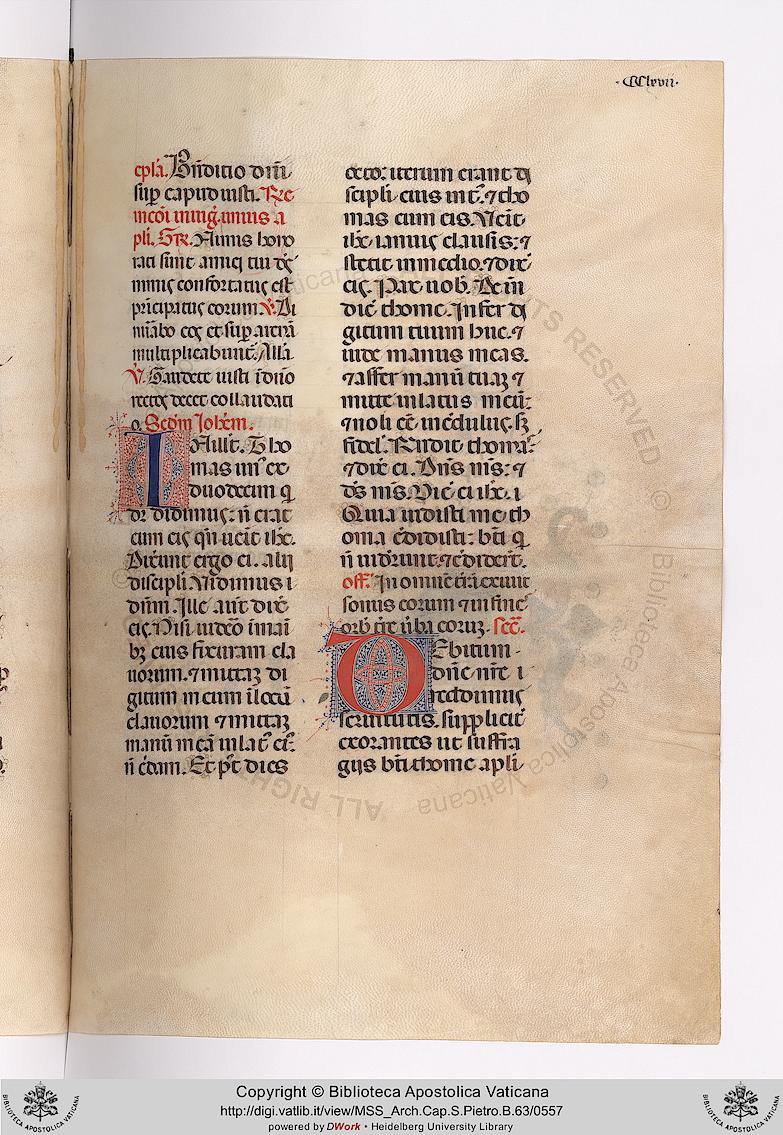 ·CClxvii·
epl̄a. Bn̄dictio dn̄i
sup̱ capud iusti. Re
in cōi unius a
pl̄i. Gr̄. Nimis hono
rati sunt amici tui dē
nimis confortatus est
principatus eorum. V̓. Di
nūabo eos et sup̱ arenā
multiplicabunt̄. All̄a.
V̓. Gaudete iusti ī dn̄o
rectos decet collaudatio
o. Scd̄m Joh̄em.
IN illit̄. Tho
mas un̓ ex
duodecim q̄
dr̄ didimus: n̄ erat
cum eis qn̄ uēit ih̄c.
Dixerunt ergo ei alij
discipli. Vidimus
dn̄m. Ille aut̄ dix̄
eis. Nisi uidēo ī mani
bȝ eius fixuram cla
uorum. ⁊ mittaȝ di
gitum meum ī locū
clauorum ⁊ mittaȝ
manū meā ī lat̄ ei̓:
n̄ c̄dam. Et p̓t dies
octo: iterum erant di
scipli eius int̄. ⁊ tho
mas cum eis. Vēit
ih̄c ianuis clausis: ⁊
stetit in medio. ⁊ dix̄
eis. Pax uob̄. De īn
dic̄ thome. Infer di
gitum tuum huc. ⁊
uide manus meas.
⁊ affer manū tuaȝ ⁊
mitte in latus meū:
⁊ noli eē īc̄dulus. sȝ
fidel̓. Rn̄dit thomas
⁊ dix̄ ei. Dn̄s m̄s: ⁊
d̄s m̄s. Dic̄ ei ih̄c.
Quia uidisti me th
oma c̄didisti: bt̄i q̄
n̄ uiderunt. ⁊ c̄didert̄.
off̄. In omnē t̄rā exiuit
sonus eorum ⁊ in fines
orb̄ t̄re ūba eoruȝ. sec̄.
DEbitum
dn̄e nr̄e
reddimus
seruitutis. supplicit̄
exorantes ut suffra
gijs bt̄i thome apl̄i
Copyright © Biblioteca Apostolica Vaticana
http://digi.vatlib.it/view/MSS_Arch.Cap.S.Pietro.B.63/0557
powered by DWork • Heidelberg University Library
BIBLIOTECA APOSTOLICA VATICANA
BIBLIOTECA APOSTOLICA VATICANA
© Biblioteca Apostolica Vaticana ALL RIGHTS RESERVED